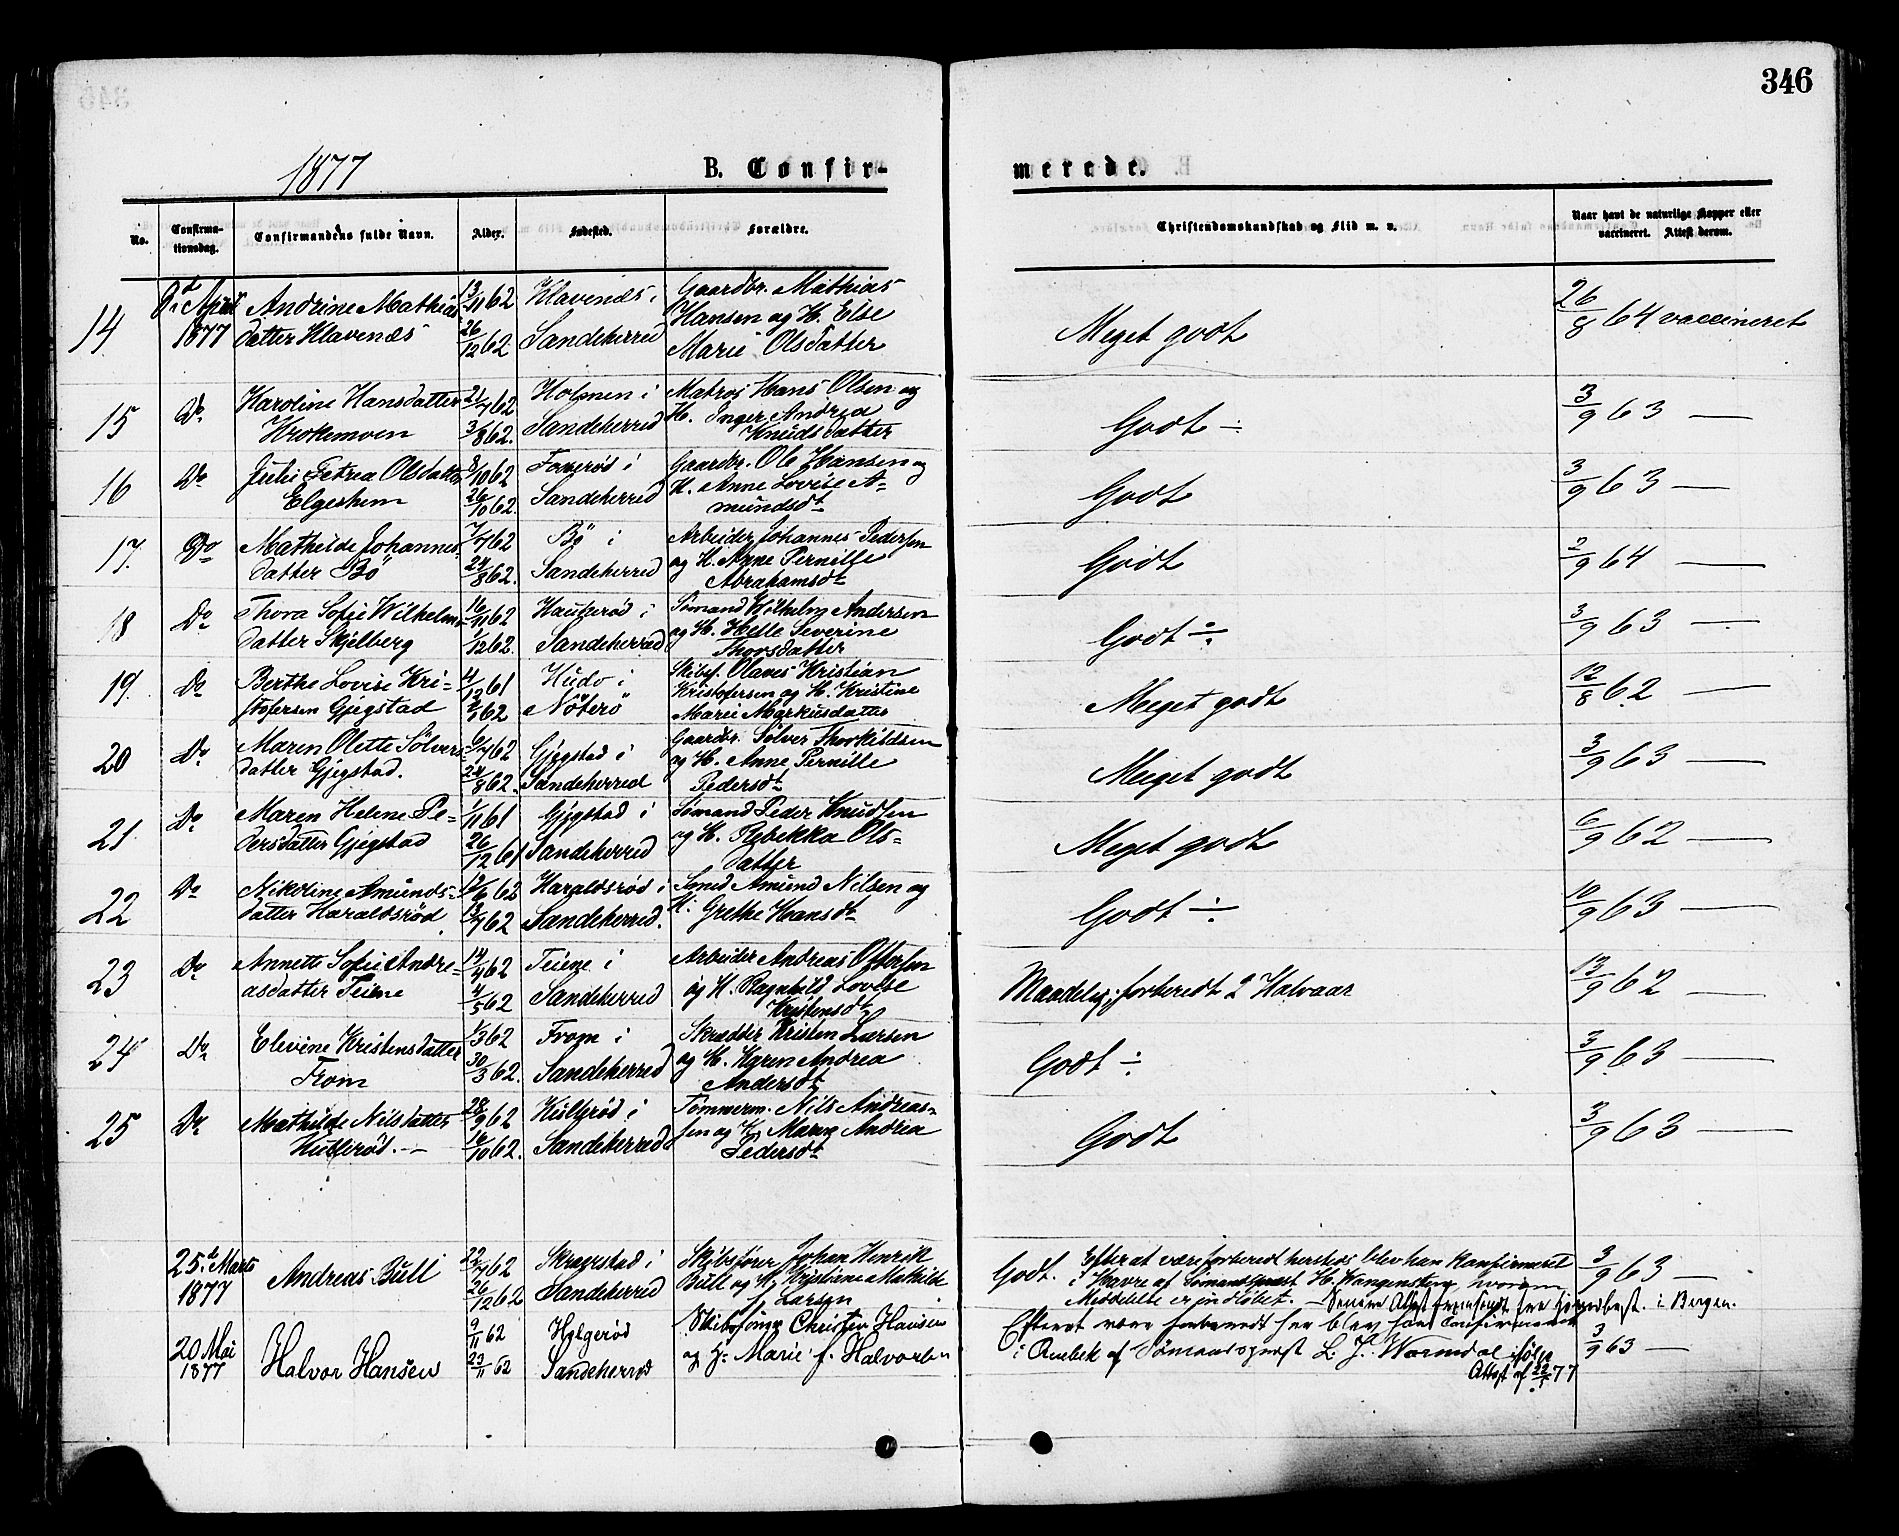 346
1877
B. Confir-
merede.
No.
Confirma-
tionsdag.
Confirmandens fulde Navn.
Alder.
Indested.
Forældre.
Christendomskundskab og Flid m. v.
Naar havt de naturlige Kopper eller
vaccineret. Attest derom.
14
April
1877
Andrine Mathias
datter Klavenæs
13/11 62
26/12 62
Klavenæs i
Sandeherred
Gaardbr. Mathias
Hansen og H. Else
Marie Olsdatter
Meget godt
26/8 64 vaccineret
15
Do
Karoline Hansdatter
Krokemoen
21/7 62
3/8 62.
Holmen i
Sandeherred
Matros Hans Olsen og
H. Inger Andrea
Knudsdatter
Godt ÷
3/9 63 —
16
Do
Julie Petrea Olsdatter
Elgeshem
8/10 62
26/10 62
Fogerød i
Sandeherred
Gaardbr. Ole Hansen og
H. Anne Lovise A-
mundsdt
Godt
3/9 63 —
17.
Do
Mathilde Johannes
datter Bö
7/7 62
24/8 62.
Bö i
Sandeherred
Arbeider Johannes Pedersen
og H. Anne Pernille
Abrahamsdt
Godt
2/9 64 —
18
Do
Thora Sofie Wilhelms
datter Skjelberg
16/11 62
1/12 62.
Haukerød i
Sandeherred
Sømand Wilhelm Andersen
og H. Helle Severine
Thorsdatter
Godt ÷
3/9 63 —
19.
Do
Berthe Lovise Kri-
stofersen Gjegstad
4/12 61
62
Hudø i
Nöterö
Skibsf. Olaves Kristian
Kristofersen og H. Kristine
Marie Markusdatter
Meget godt
12/8 62 —
20
Do
Maren Olette Sølvers
datter Gjegstad.
6/7 62
24/8 62.
Gjegstad i
Sandeherred
Gaardbr. Sølver Thorkildsen
og H. Anne Pernille
Pedersdt
Meget godt
3/9 63 —
21.
Do
Maren Helene Pe-
dersdatter Gjegstad
1/11 61
26/12 61
Gjegstad i
Sandeherred
Sømand Peder Knudsen
og H. Rebekka Ols-
datter
Meget godt
6/9 62 —
22
Do
Nikoline Amunds-
datter Haraldsrød
62
13/7 62
Haraldsrød i
Sandeherred.
Smed Amund Nilsen og
H. Grethe Hansdt
Godt ÷
10/9 63 —
23
Do
Annette Sofie Andre-
asdatter Teiene
14/4 62
4/5 62
Teiene i
Sandeherred
Arbeider Andreas Ottersen
og H. Ragnhild Lovise
Kristensdt
Maadelig; forberedt 2 Halvaar
13/9 62 —
24
Do
Elevine Kristensdatter
From
1/3 62
30/3 62.
From i
Sandeherred
Skrædder Kristen Larsen
og H. Karen Andrea
Andersdt
Godt ÷
3/9 63 —
25
Do
Mathilde Nilsdatter
Kullerød. —
28/9 62
16/10 62.
Kullerød i
Sandeherred
Tømmerm. Nils Andreas-
sen og H. Maren Andrea
Pedersdt
Godt
3/9 63 —
25d Marts
1877
Andreas Bull
22/7 62
26/12 62
Skragstad i
Sandeherred
Skibsfører Johan Henrik
Bull og H. Kristiane Mathilde
f. Larsen
Godt. Efterat være forberedt herstæds blev han konfirmeret
i Havre af Sømandspræst H. Wangensteen hvorom
Meddelelse er indløbet. — Senere Attest fremsendt fra i Bergen.
3/9 63 —
20 Mai
1877
Halvor Hansen
9/11 62
23/11 62
Hølgerød
Sandeherred
Christen Hansen
og H. Marie f. Halvorsen
Efterat være forberedt her blev han Confirmeret
i af Sømandspræst L. J. Warmdal ifølge
Attest af 22/5 77
3/9 63 —